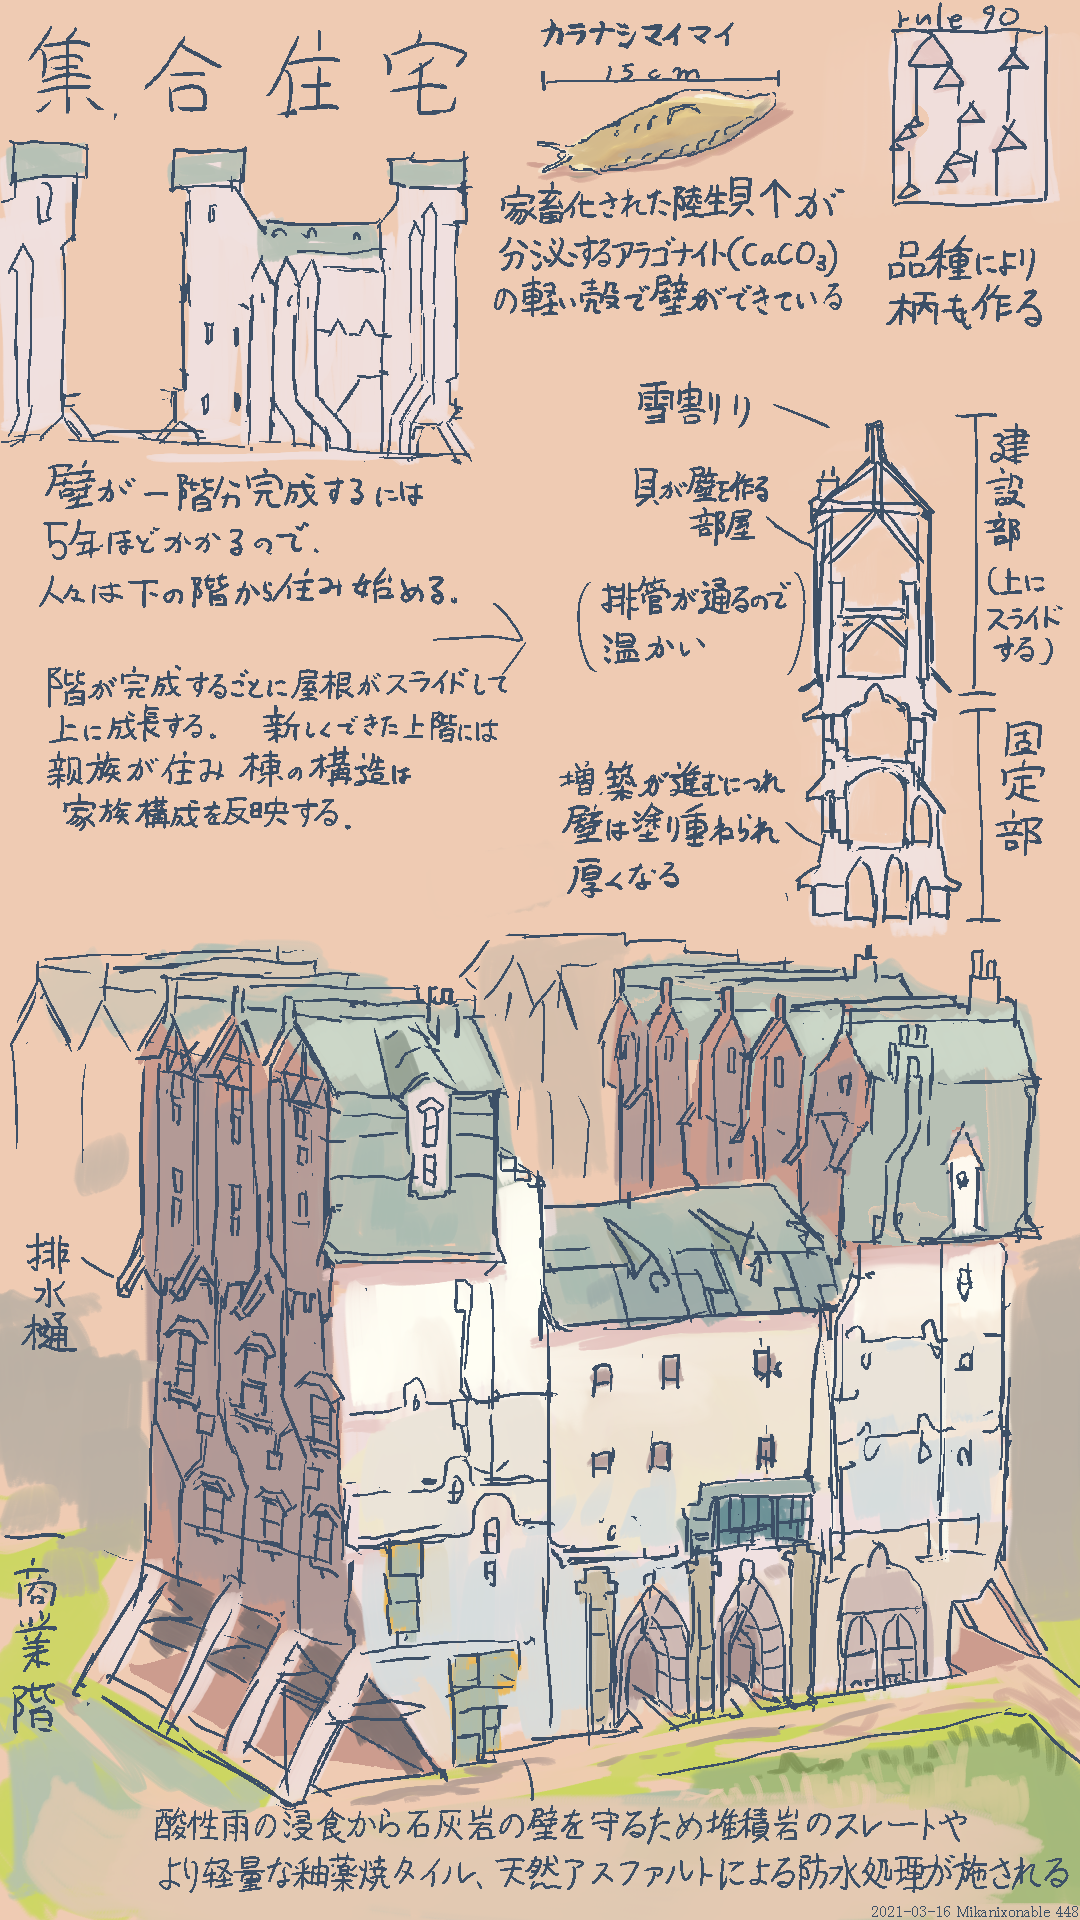 集合住宅
カラナシマイマイ
15cm
家畜化された陸生貝↑が
分泌するアラゴナイト(CaCO₃)
の軽い殻で壁ができている
rule 90
品種により
柄も作る
壁が一階分完成するには
5年ほどかかるので、
人々は下の階から住み始める。
階が完成するごとに屋根がスライドして
上に成長する。 新しくできた上階には
親族が住み 棟の構造は
家族構成を反映する。
雪割り
貝が壁を作る
部屋
(排管が通るので
温かい)
建設部
(上に
スライド
する)
固定部
増築が進むにつれ
壁は塗り重ねられ
厚くなる
排水樋
商業階
酸性雨の浸食から石灰岩の壁を守るため堆積岩のスレートや
より軽量な釉薬焼タイル、天然アスファルトによる防水処理が施される
2021-03-16 Mikanixonable 448